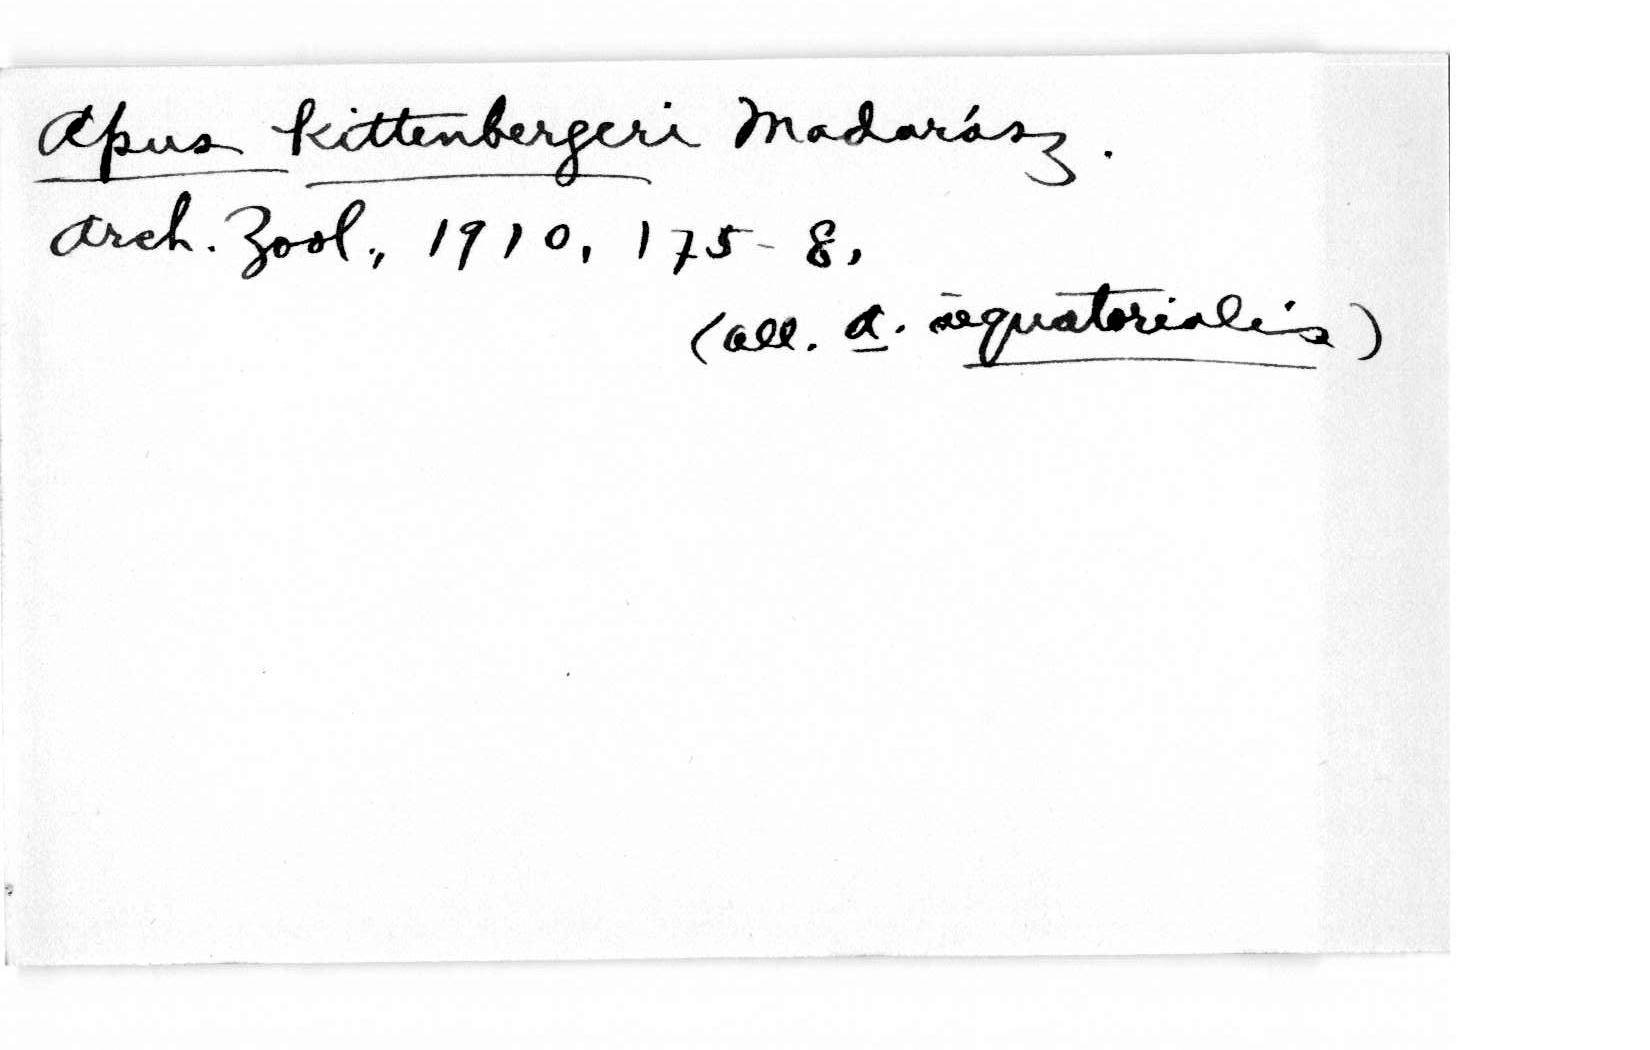 Apus kittenbergeri Madarász.
Arch. Zool., 1910, 175-8,
(all. A. æquatorialis)